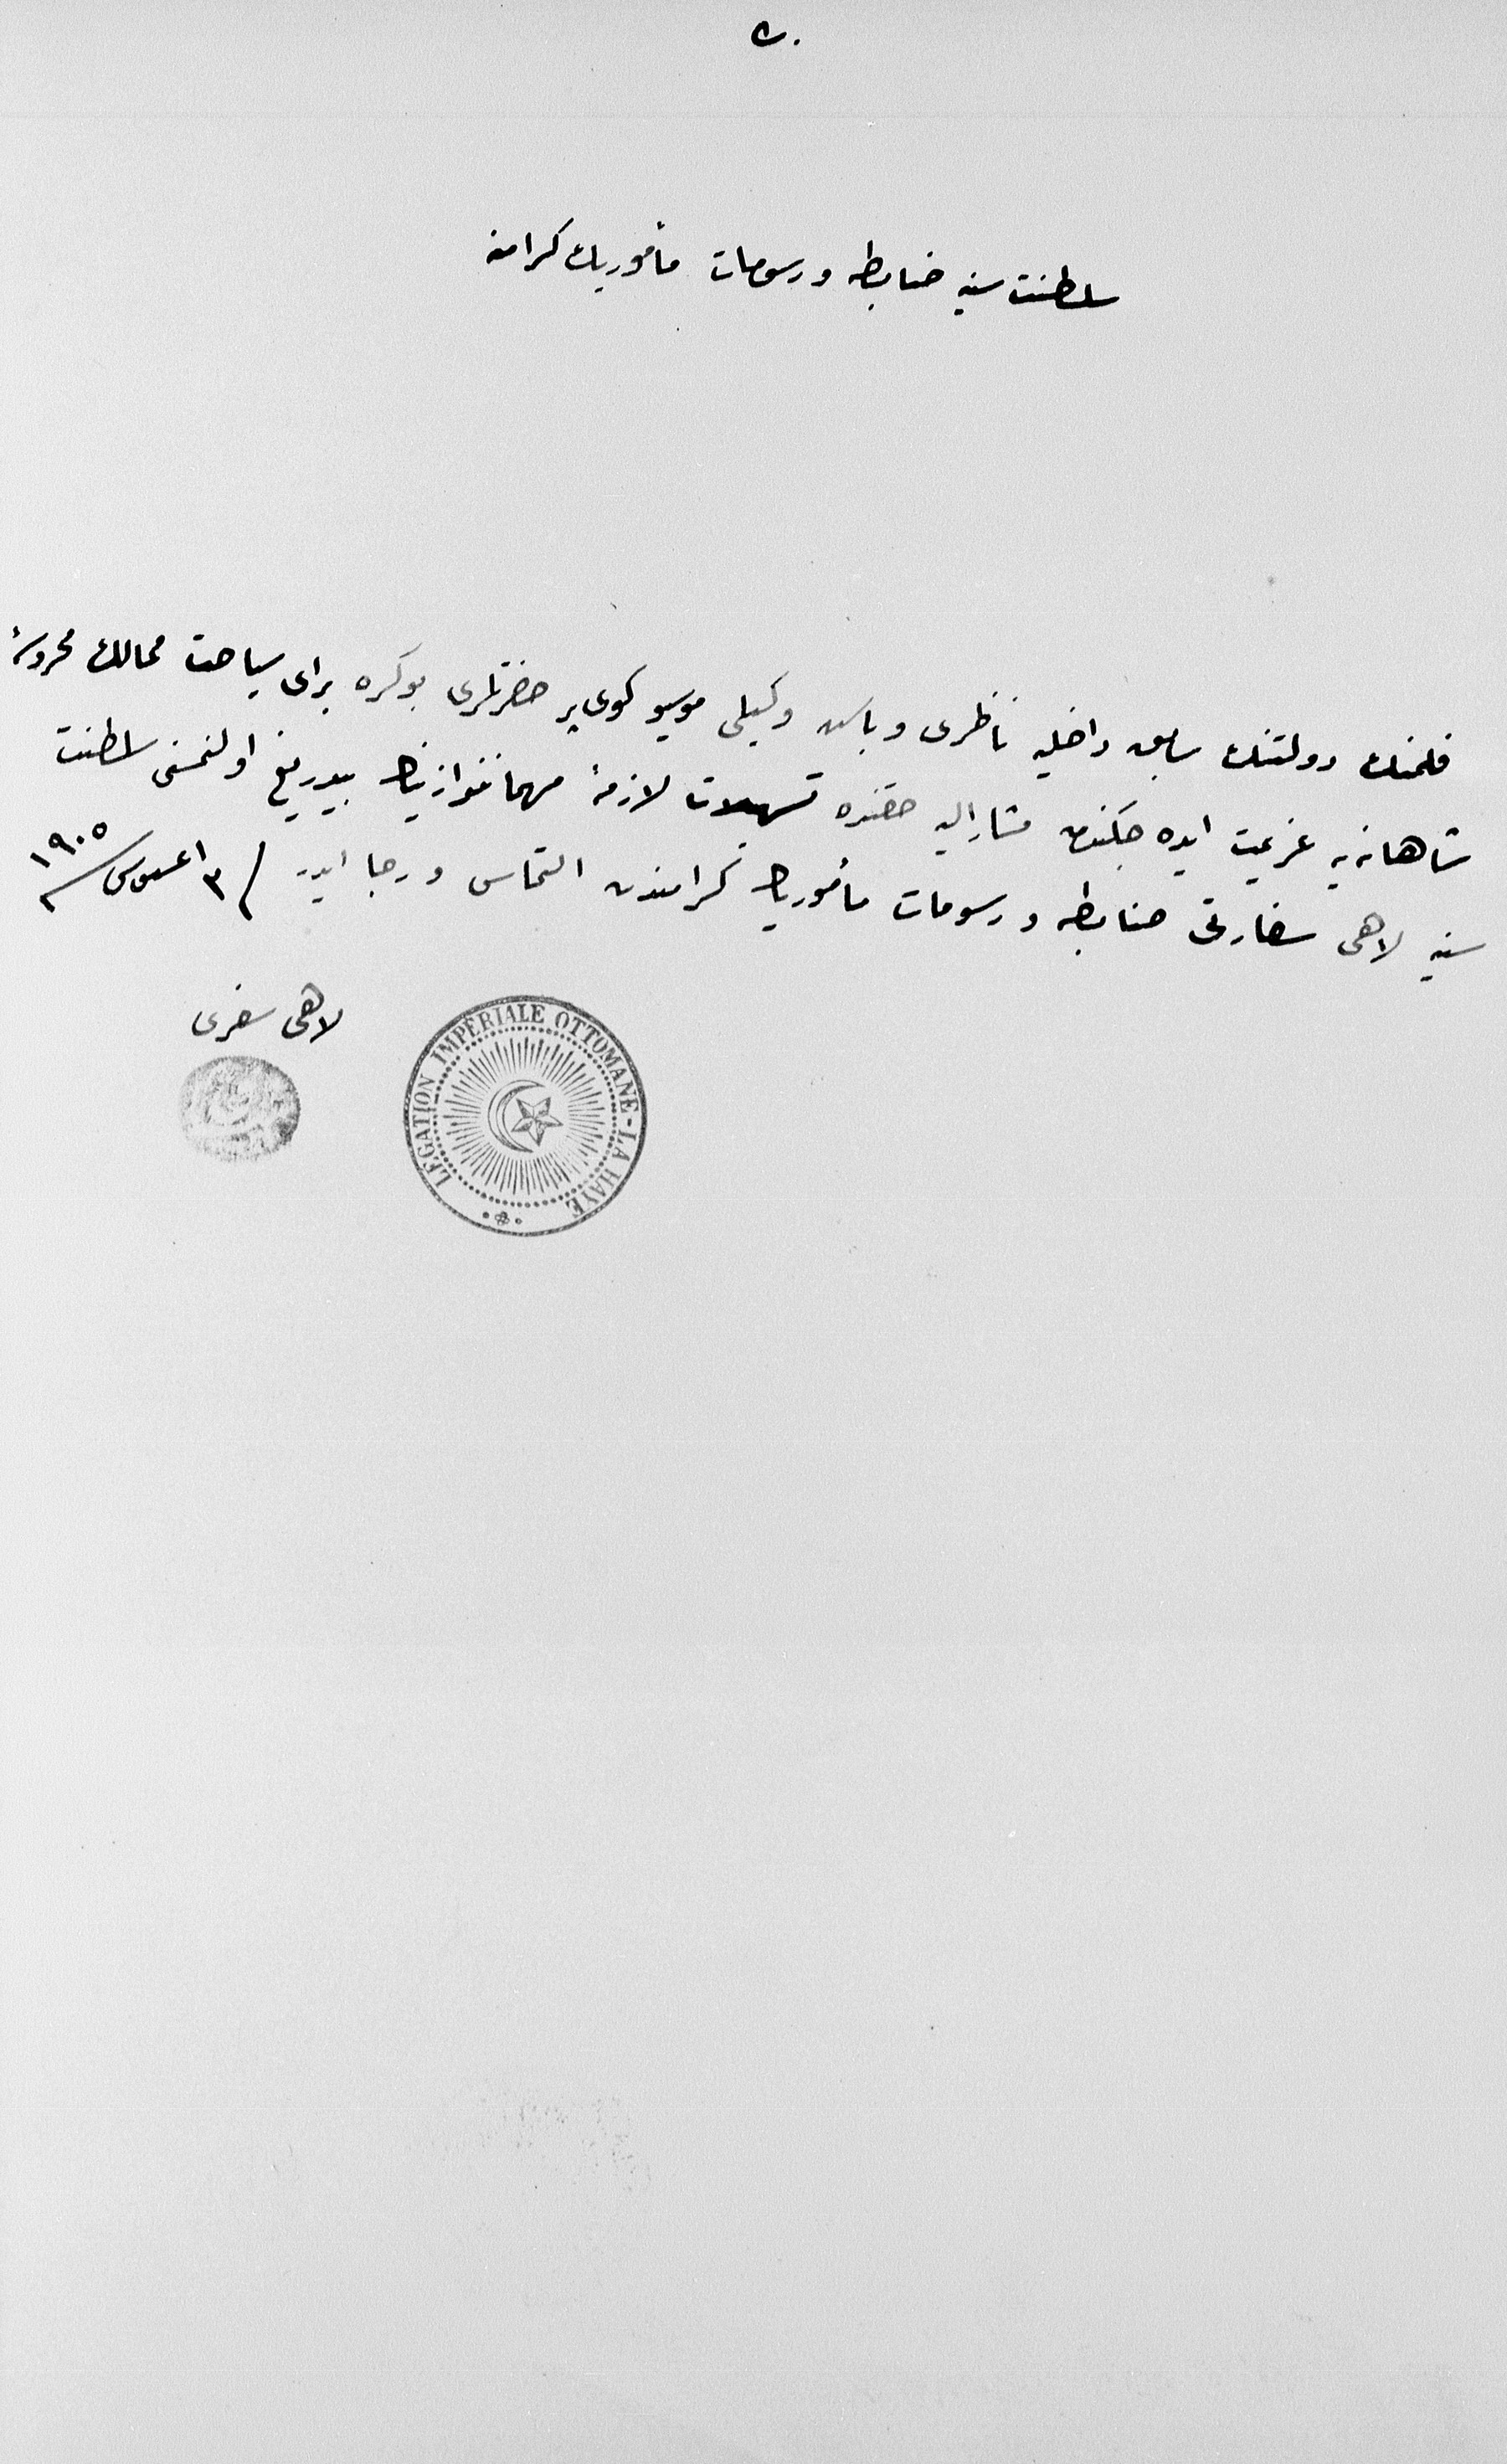 سلطنت سنیه ضابطه و رسومات مأمورین کرامنه
فلمنك دولتنك سابق داخلیه ناظری و باش وکیلی موسیو کویپر حضرتلری بوکره برای سیاحت ممالك محروسهٔ
شاهانه یه عزیمت ایده جكندن مشار الیه حقنده تسهیلات لازمهٔ مهماننوازینك بیدریغ اولنمسنی سلطنت
سنیه لاهی سفارتی ضابطه و رسومات مأمورین کرامندن التماس و رجا ایدر ٣ اغستوس سنه ١٩٠٥
لاهی سفیری
LÉGATION IMPÉRIALE OTTOMANE - LA HAYE